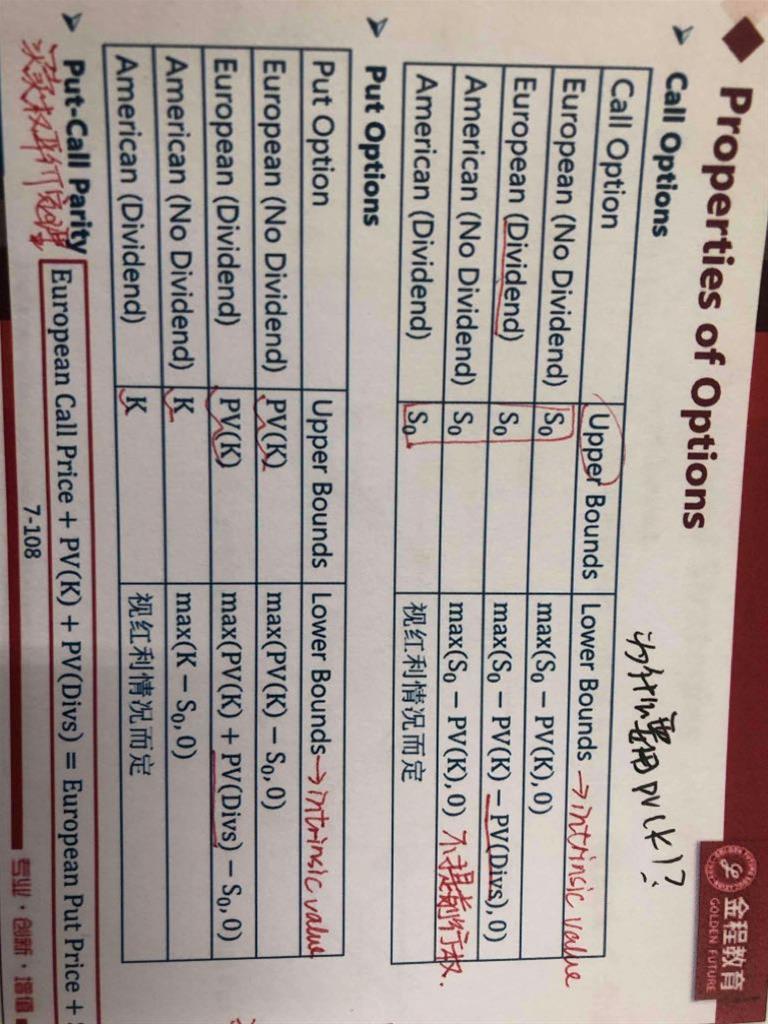 Properties of Options
金程教育
GOLDEN FUTURE
Call Options
为什么要用PV(K)?
Call Option Upper Bounds Lower Bounds → intrinsic value
European (No Dividend) S₀ max(S₀ − PV(K), 0)
European (Dividend) S₀ max(S₀ − PV(K) − PV(Divs), 0)
American (No Dividend) S₀ max(S₀ − PV(K), 0) 不提前行权.
American (Dividend) S₀ 视红利情况而定
Put Options
Put Option Upper Bounds Lower Bounds → intrinsic value
European (No Dividend) PV(K) max(PV(K) − S₀, 0)
European (Dividend) PV(K) max(PV(K) + PV(Divs) − S₀, 0)
American (No Dividend) K max(K − S₀, 0)
American (Dividend) K 视红利情况而定
Put-Call Parity
European Call Price + PV(K) + PV(Divs) = European Put Price +
7-108
专业・创新・增值